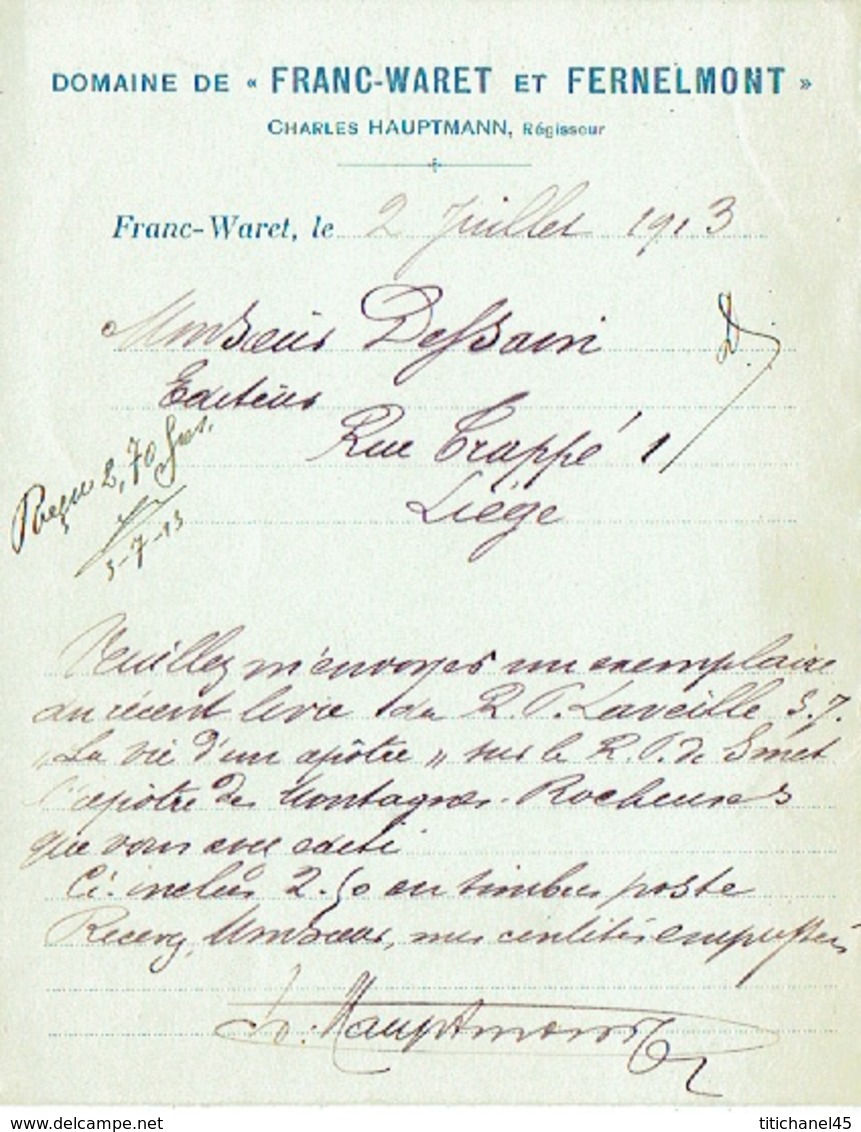 DOMAINE DE « FRANC-WARET ET FERNELMONT »
CHARLES HAUPTMANN, Régisseur
Franc-Waret, le 2 Juillet 1913
Monsieur Dessain
Editeur
Rue Trappé 1
Liége
Reçu 2,70 frs.
3-7-13
Veuillez m'envoyer un exemplaire
du récent livre du R. P. Laveille S. J.
"La vie d'un apôtre" sur le R. P. de Smet
l'apôtre des Montagnes-Rocheuses
que vous avez édité
Ci-inclus 2.50 en timbres poste
Recevez, Monsieur, mes civilités empressées
Hauptmann
titichanel45